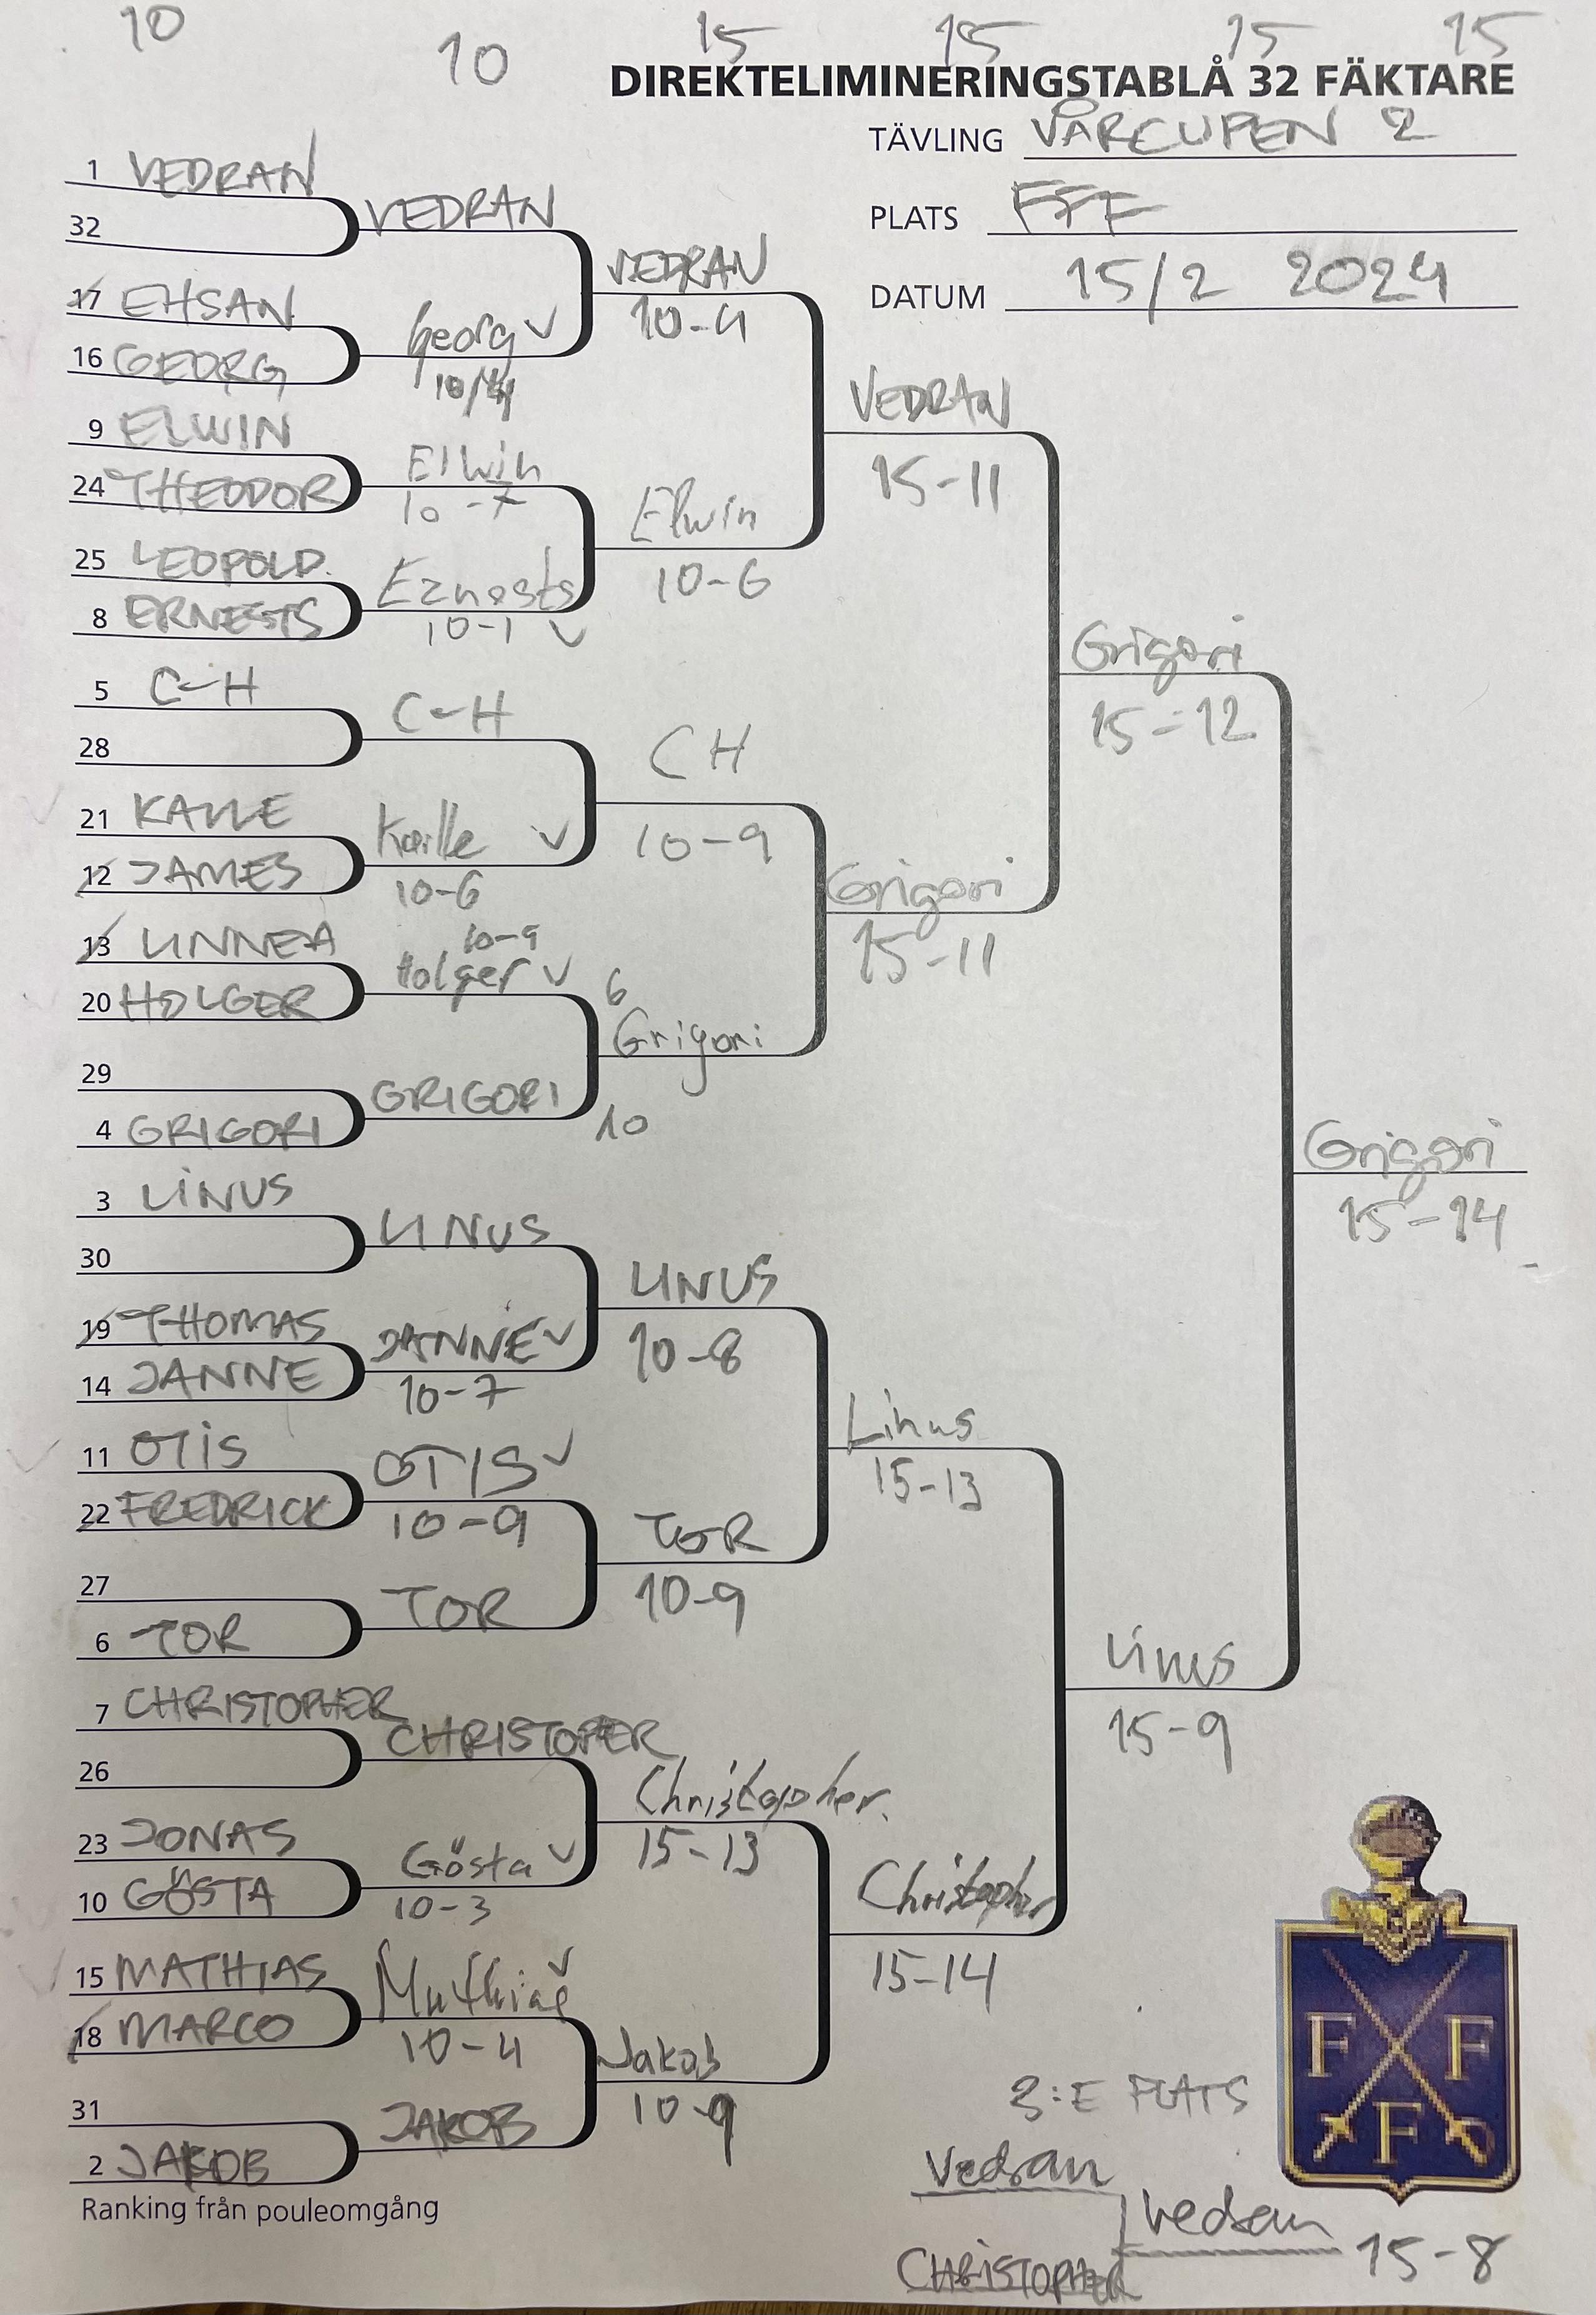 10 10 15 15 15 15
DIREKTELIMINERINGSTABLÅ 32 FÄKTARE
TÄVLING VÅRCUPEN 2
PLATS FFF
DATUM 15/2 2024
1 VEDRAN
32
17 EHSAN
16 GEORG
9 ELWIN
24 THEODOR
25 LEOPOLD
8 ERNESTS
5 C-H
28
21 KALLE
12 JAMES
13 LINNEA
20 HOLGER
29
4 GRIGORI
3 LINUS
30
19 THOMAS
14 JANNE
11 OTIS
22 FREDRICK
27
6 TOR
7 CHRISTOPHER
26
23 JONAS
10 GÖSTA
15 MATHIAS
18 MARCO
31
2 JAKOB
Ranking från pouleomgång
VEDRAN
Georg ✓
Elwin
10-7
Ernests
10-1 ✓
C-H
Kalle ✓
10-6
10-9
Holger ✓
GRIGORI
LINUS
JANNE ✓
10-7
OTIS ✓
10-9
TOR
CHRISTOPER
Gösta ✓
10-3
Mathias ✓
10-4
JAKOB
VEDRAN
10-4
Elwin
10-6
CH
10-9
6
Grigori
10
LINUS
10-8
TOR
10-9
Christopher.
15-13
Jakob
10-9
VEDRAN
15-11
Grigori
15-11
Linus
15-13
Christopher
15-14
Grigori
15-12
Linus
15-9
Grigori
15-14
3:E PLATS
Vedran
CHRISTOPHER
Vedran
15-8
F F
F